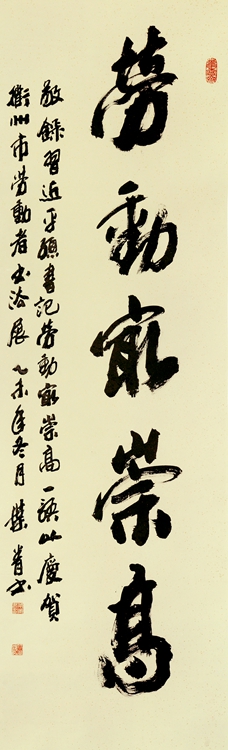 勞動最崇高
敬錄習近平總書記勞動最崇高一語以慶賀
衢州市勞動者書法展 乙未年冬月 葉青書